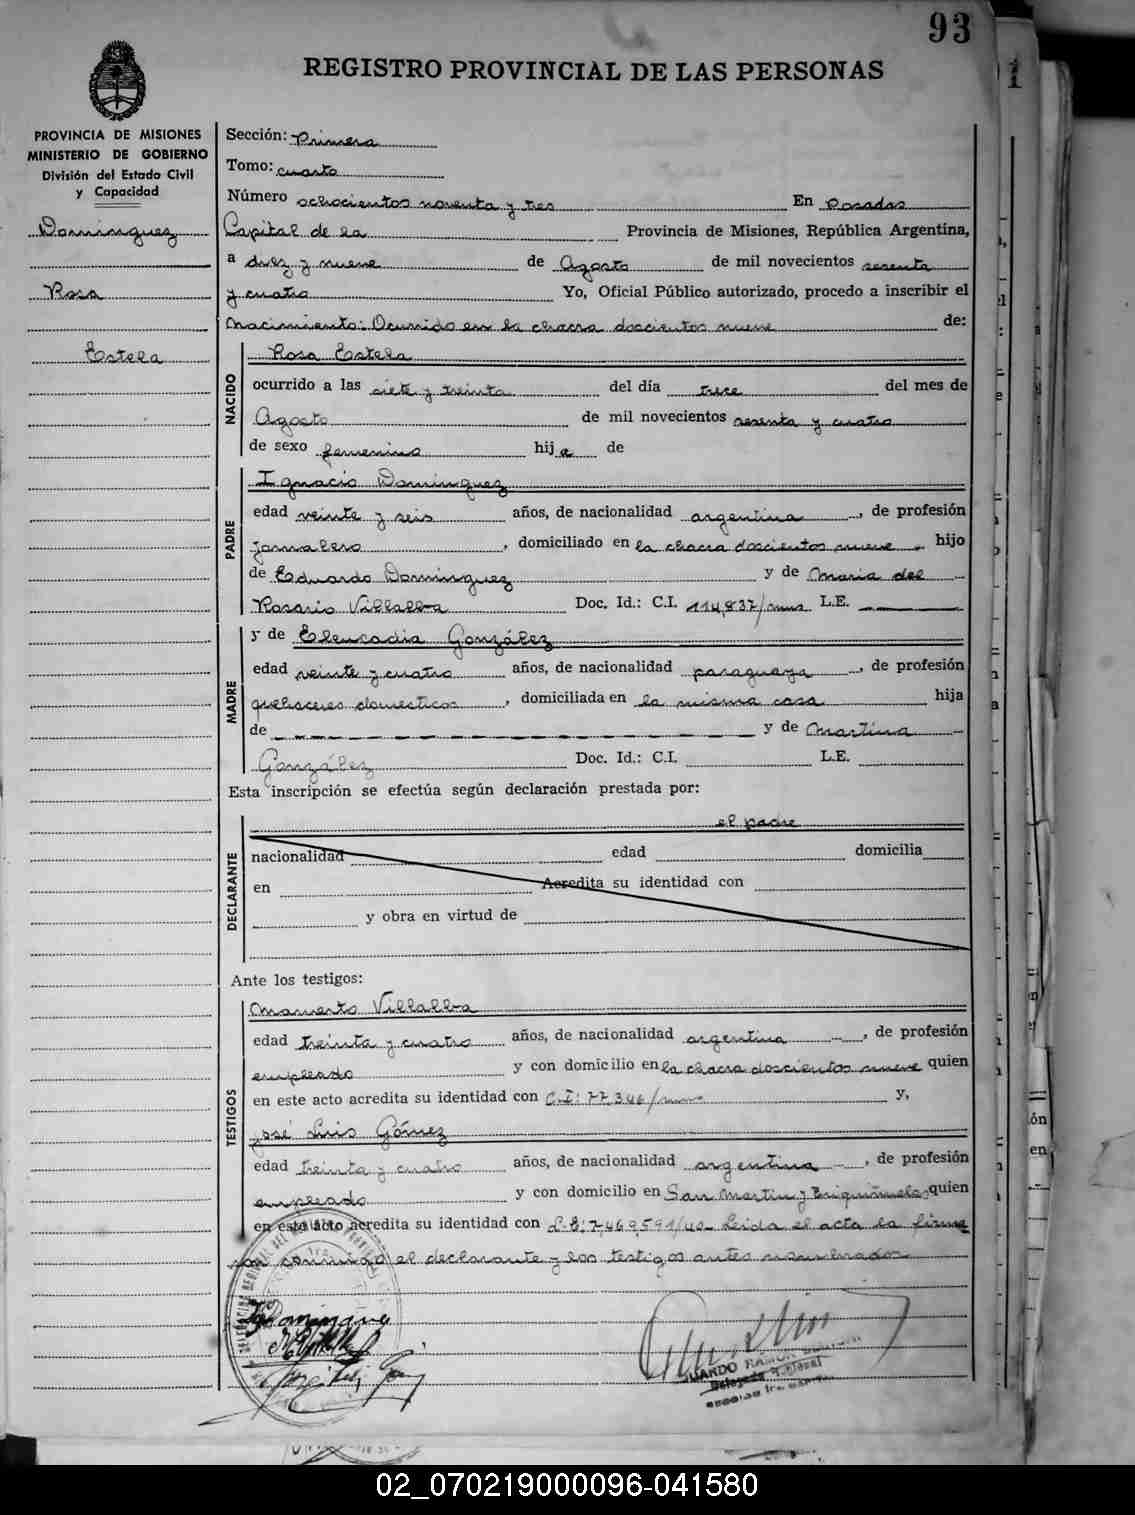 93
REGISTRO PROVINCIAL DE LAS PERSONAS
PROVINCIA DE MISIONES
MINISTERIO DE GOBIERNO
División del Estado Civil
y Capacidad
Dominguez
Rosa
Estela
Sección: Primera
Tomo: cuarto
Número ochocientos noventa y tres En Posadas
Capital de la Provincia de Misiones, República Argentina,
a diez y nueve de Agosto de mil novecientos sesenta
y cuatro Yo, Oficial Público autorizado, procedo a inscribir el
Nacimiento: Ocurrido en la chacra doscientos nueve de:
NACIDO
Rosa Estela
ocurrido a las siete y treinta del día trece del mes de
Agosto de mil novecientos sesenta y cuatro
de sexo femenino hija de
PADRE
Ignacio Dominguez
edad veinte y seis años, de nacionalidad argentina, de profesión
jornalero, domiciliado en la chacra doscientos nueve hijo
de Eduardo Dominguez y de Maria del
Rosario Villalba Doc. Id.: C.I. 114,837/mns L.E.
MADRE
y de Eleucadia González
edad veinte y cuatro años, de nacionalidad paraguaya, de profesión
quehaceres domesticos, domiciliada en la misma casa hija
de y de Martina
González Doc. Id.: C.I. L.E.
Esta inscripción se efectúa según declaración prestada por:
DECLARANTE
el padre
nacionalidad edad domicilia
en Acredita su identidad con
y obra en virtud de
Ante los testigos:
TESTIGOS
Mamerto Villalba
edad treinta y cuatro años, de nacionalidad argentina, de profesión
empleado y con domicilio en la chacra doscientos nueve quien
en este acto acredita su identidad con C.I: 77,346/mns y,
José Luis Gómez
edad treinta y cuatro años, de nacionalidad argentina, de profesión
empleado y con domicilio en San Martin y quien
en este acto acredita su identidad con L.E: 7,469,591/40- Leida el acta la firma
con conmigo el declarante y los testigos antes nombrados
02_070219000096-041580